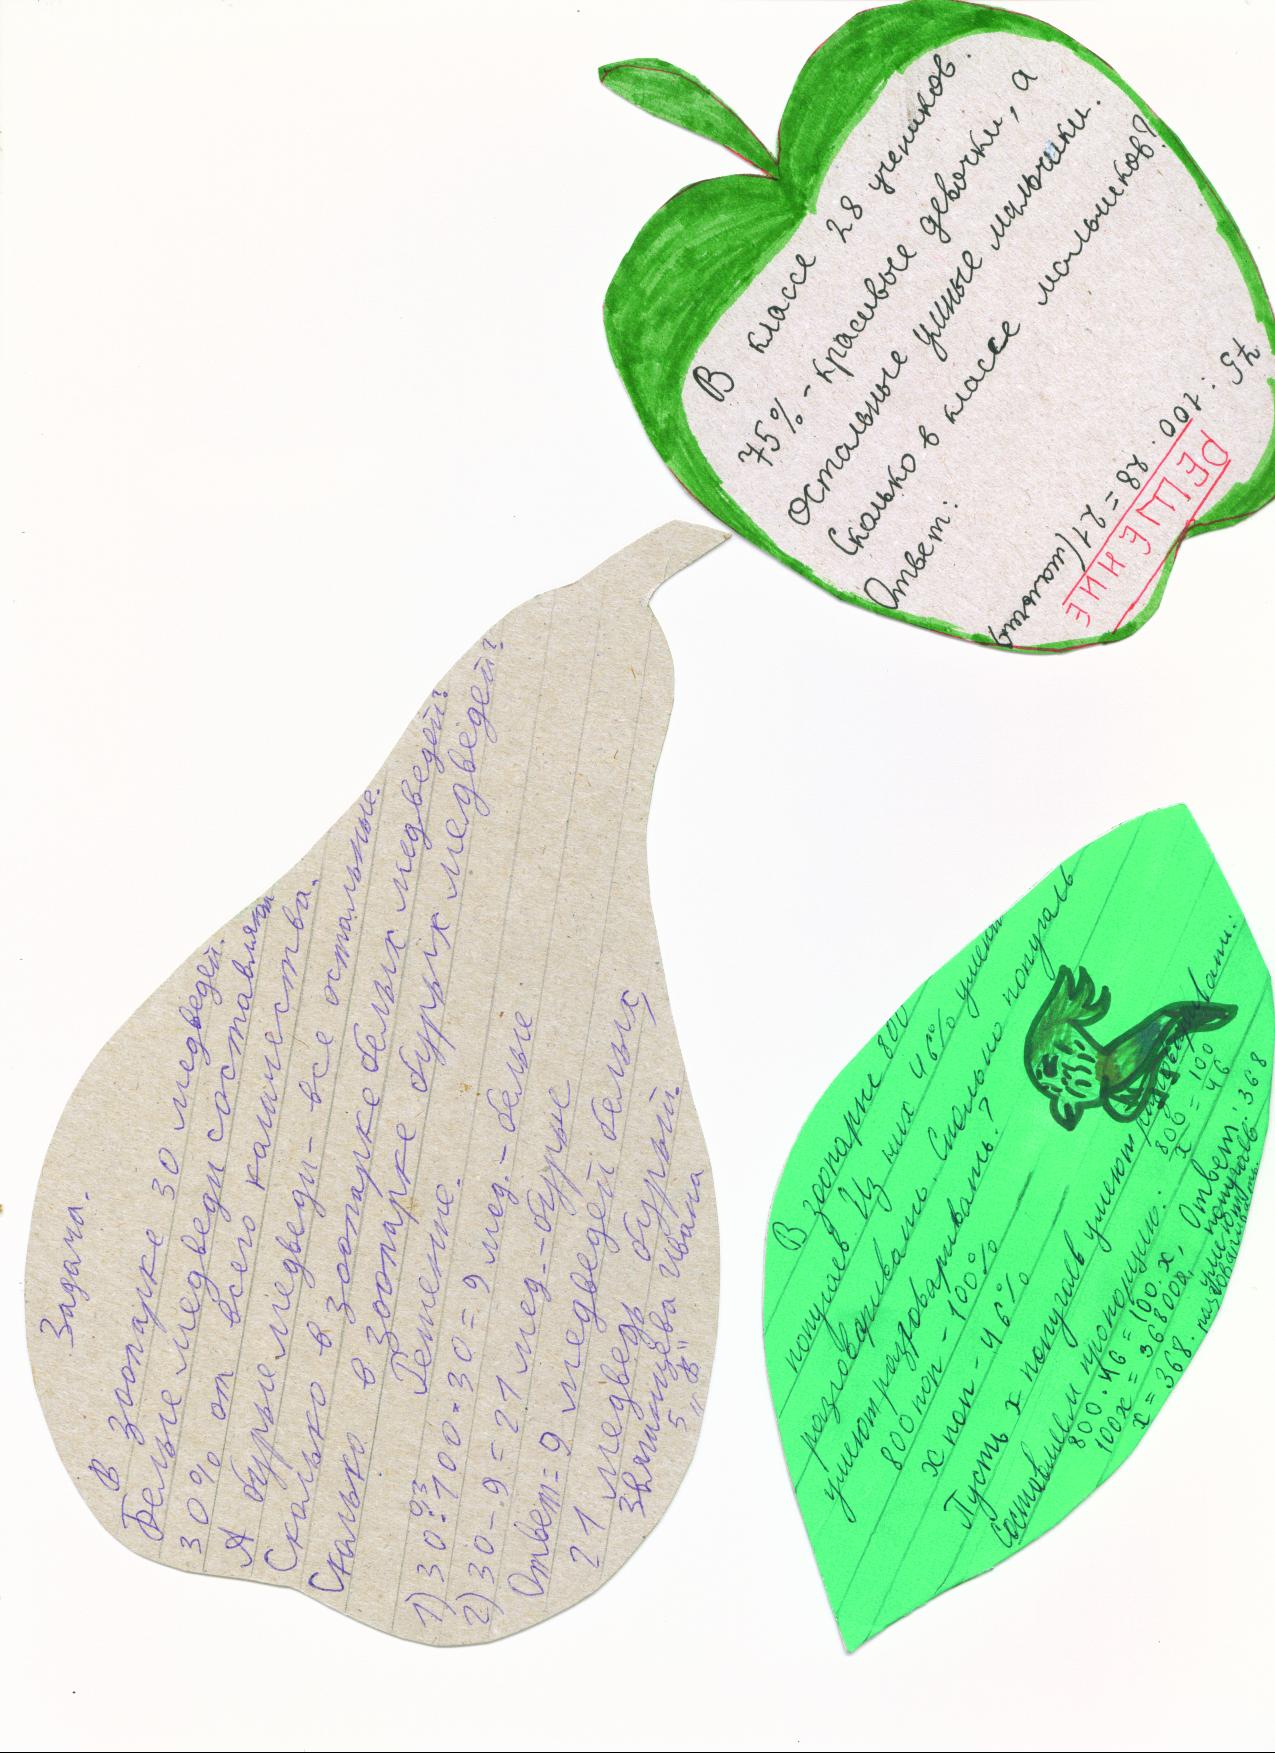 В классе 28 учеников.
75% - красивые девочки, а
остальные умные мальчики.
Сколько в классе мальчиков?
Ответ:
РЕШЕНИЕ
75 : 100 · 28 = 21 (мальчик)
Задача.
В зоопарке 30 медведей.
Белые медведи составляют
30% от всего количества.
А бурые медведи - все остальные.
Сколько в зоопарке белых медведей?
Сколько в зоопарке бурых медведей?
Решение.
1) 30:100·30=9 мед.-белые
2) 30-9=21 мед-бурые
Ответ=9 медведей белых,
21 медведь бурый.
Звягинцева Ивана
5 "В"
В зоопарке 800
попугаев. Из них 46% умеют
разговаривать. Сколько попугаев
умеют разговаривать?
800 поп - 100%
х поп - 46%
Пусть х попугаев умеют разговаривать.
Составляем пропорцию.
800 = 100
х = 46
800·46=100·х
100х=36800
х=368.
Ответ: 368
попугаев
умеют
разговаривать.